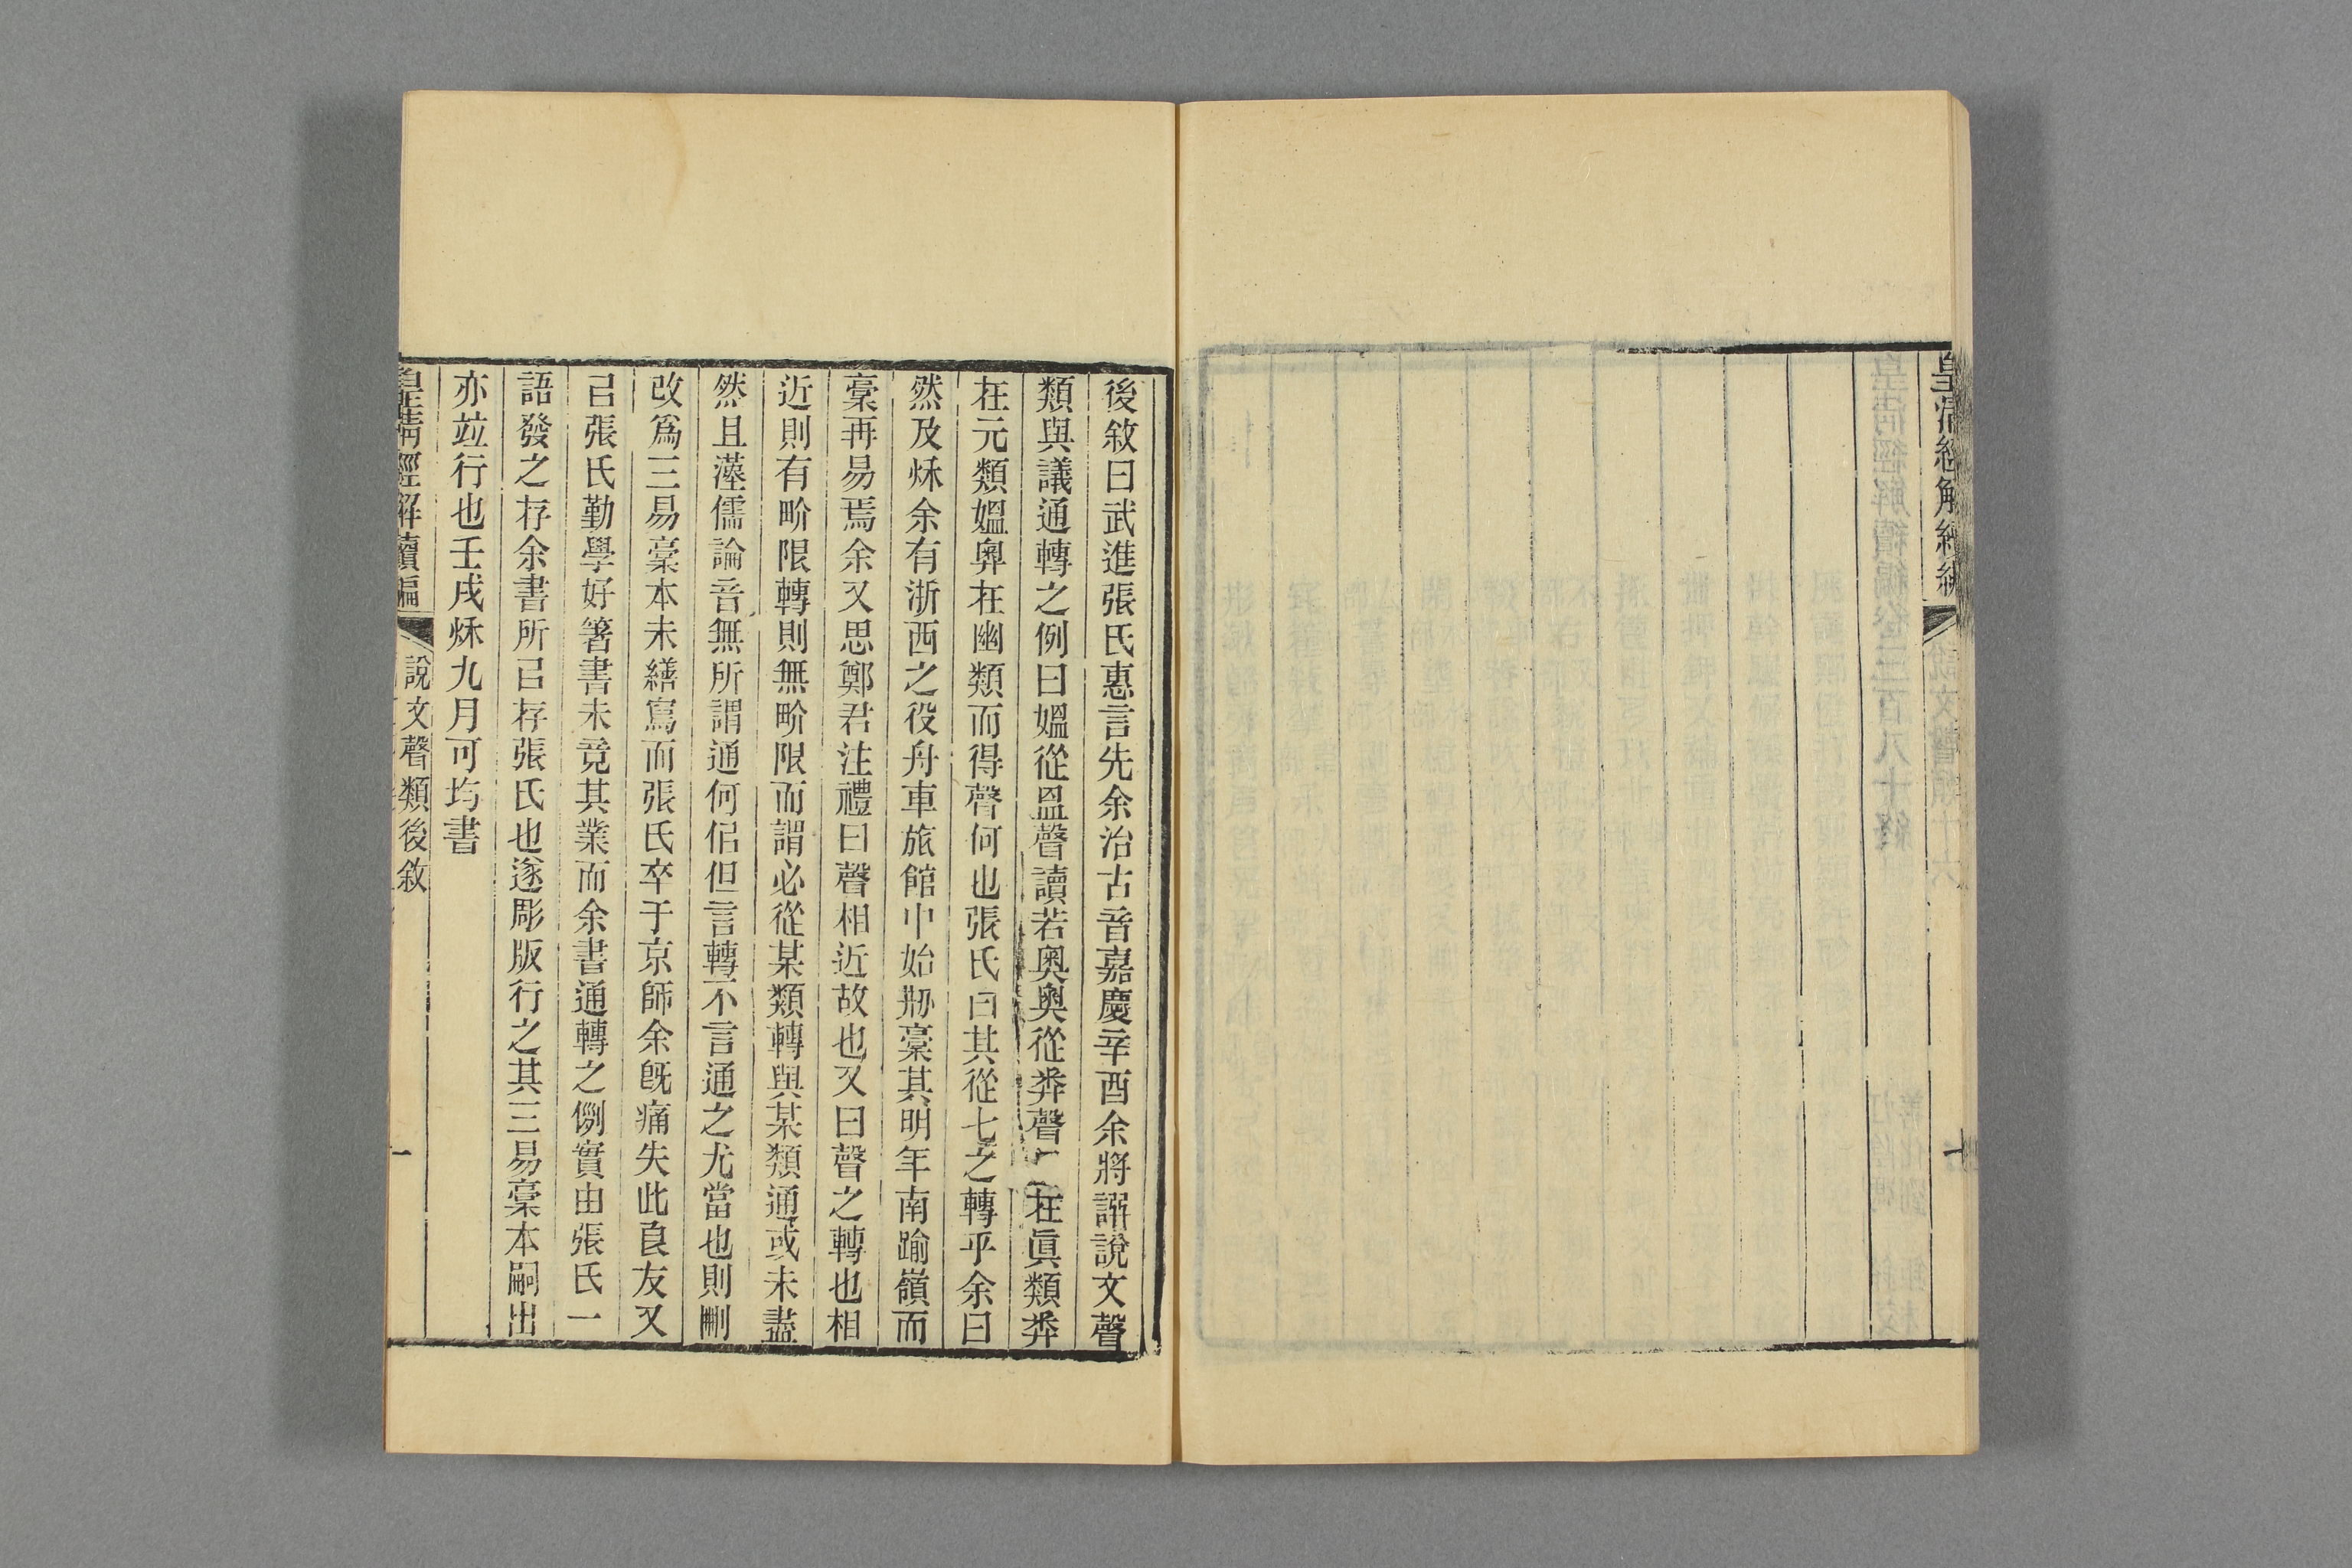 皇清經解續編
說文聲類十六
後敘曰武進張氏惠言先余治古音嘉慶辛酉余將譔說文聲
類與議通轉之例曰媼從𥁕聲讀若奧奧從𢍏聲𥁕在眞類𢍏
在元類媼奧在幽類而得聲何也張氏曰其從七之轉乎余曰
然及秌余有浙西之役舟車旅館中始剏稾其明年南踰嶺而
稾再易焉余又思鄭君注禮曰聲相近故也又曰聲之轉也相
近則有畍限轉則無畍限而謂必從某類轉與某類通或未盡
然且漢儒論音無所謂通何侶但言轉不言通之尤當也則刪
改爲三易稾本未繕寫而張氏卒于京師余旣痛失此良友又
已張氏勤學好箸書未竟其業而余書通轉之例實由張氏一
語發之存余書所已存張氏也遂彫版行之其三易稾本嗣出
亦竝行也壬戌秌九月可均書
皇淸經解續編
說文聲類後敘
一